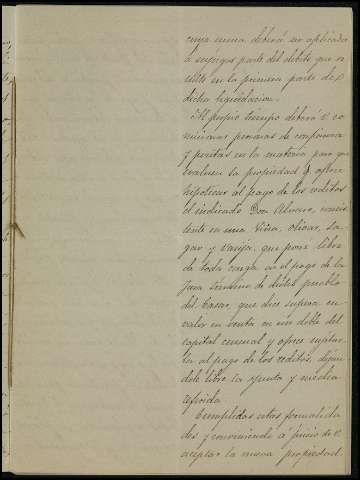 cuya suma deberá ser aplicada
á enjugar parte del debito que re
sulte en la primera parte de
dicha liquidacion.
Al propio tiempo deberá V. co
misionar personas de confianza
y peritas en la materia para que
evaluen la propiedad q. ofrece
hipotecar al pago de los reditos
el indicado Don Alvaro, consis
tente en una Viña, olivar, la
gar y Vasija, que posee libre
de toda carga en el pago de la
Jara término de dicho pueblo
del Casar, que dice supera en
valor en venta en un doble del
capital censual y ofrece sujetar
la al pago de los reditos, dejan
dole libre la y media
referida
Cumplidas estas formalida
des y conviniendo á juicio de V.
aceptar la nueva propiedad